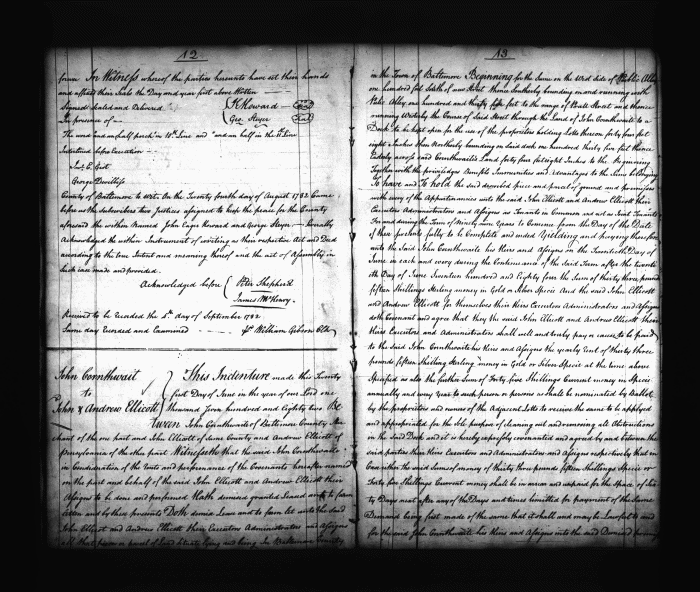 12
forme In Witness whereof the parties hereunto have set their hands
and affixed their Seals the Day and year first above Written
Signed sealed and Delivered
In presence of
JE Howard Seal
Geo Steyer Seal
The word and an half perch in 10th Line and "and an half in the 11 Line
Interlined before Execution
Jas. E. Gist
George Devilbiss
County of Baltimore to wit. On the Twenty fourth day of August 1782 Came
before us the Subscribers two Justices assigned to keep the peace for the County
aforesaid the within Named John Eager Howard and George Steyer & Severally
Acknowledged the within Instrument of writing as their respective Act and Deed
according to the true Intent and meaning hereof and the act of Assembly in
Such case made and provided.
Acknowledged before
Peter Shepherd
James McHenry
Received to be recorded the 5th day of September 1782
Same day Recorded and Examined
pr William Gibson Clk
John Cornthwait
to
John & Andrew Ellicott
This Indenture made this Twenty
first Day of June in the year of our Lord one
thousand Seven hundred and Eighty two Be
tween John Cornthwait of Baltimore County Mer
chant of the one part and John Ellicott of same County and Andrew Ellicott of
Pensylvania of the other part Witnesseth that the said John Cornthwait
in Consideration of the Rents and performance of the Covenants hereafter named
on the part and behalf of the said John Ellicott and Andrew Ellicott their
Assigns to be done and performed Hath demised granted Leased and to farm
letten and by these presents Doth demise Lease and to farm let unto the said
John Ellicott and Andrew Ellicott their Executors Administrators and Assigns
all that piece or parcel of Land Situate lying and being in Baltimore County
13
in the Town of Baltimore Beginning for the Same on the West side of Public Alley
one hundred feet South of Street thence Southerly bounding on and running with
said Alley one hundred and thirty feet to the range of Pratt Street and thence
running Westerly the Course of said Street through the Land of John Cornthwait to a
Dock to be kept open for the use of the proprietors holding Lotts thereon forty four feet
eight Inches then Northerly bounding on Said dock one hundred thirty five feet thence
Easterly across said Cornthwaits Land forty four feet eight Inches to the Beginning
Together with the priviledges Benefits Immunities and Advantages to the same belonging
To have and To hold the said described piece and parcel of ground and premises
with every of the Appurtenances unto the said John Ellicott and Andrew Ellicott their
Executors Administrators and Assigns as Tenants in Common and not as Joint Tenants
for and during the Term of Ninety nine Years to Commence from the Day of the Date
of these presents fully to be Complete and ended Yielding and paying therefore
unto the Said John Cornthwait his Heirs and Assigns on the Twentieth Day of
June in each and every during the Continuance of the Said Term after the twenti
eth Day of June Seventeen hundred and Eighty four the Sum of thirty three pounds
fifteen Shillings Sterling money in Gold or Silver Specie And the said John Ellicott
and Andrew Ellicott for themselves their Heirs Executors Administrators and Assigns
doth Covenant and agree that they the said John Ellicott and Andrew Ellicott their
Heirs Executors and Administrators shall well and truly pay or cause to be paid
to the said John Cornthwait his Heirs and Assigns the yearly Rent of thirty three
pounds fifteen Shilling Sterling money in Gold or Silver Specie at the time above
Specified as also the further Sum of Forty five Shillings Current money in Specie
annually and every Year to such person or persons as shall be nominated by Ballot
by the proprietors and owners of the Adjacent Lotts to receive the same to be applyed
and appropriated for the sole purpose of cleaning out and removing all Obstructions
in the said Dock and it is hereby expressly covenanted and agreed by and between the
said parties their Heirs Executors and Administrators and Assigns respectively that in
Case either the said Sum of money of thirty three pounds fifteen Shillings Specie or
Forty five Shillings Current money shall be in arrear and unpaid for the Space of thir
ty Days next after any of the Days and times limitted for payment of the Same
Demand being first made of the same that it shall and may be Lawful to and
for the said John Cornthwait his Heirs and Assigns into the said Demised premises